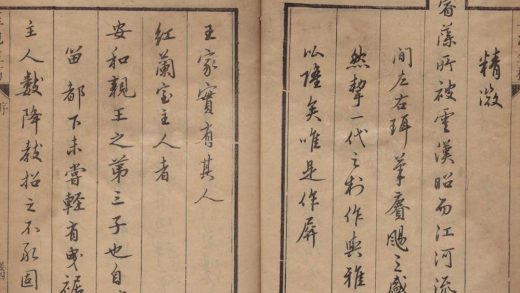 精微
睿藻所被雲漢昭而江河流
間左右珥筆賡颺之盛
然摯一代之制作與雅
以隆矣唯是作屏
王家實有其人
紅蘭室主人者
安和親王之第三子也自
留都下未嘗輕有曳裾
主人數降教招之不敢固